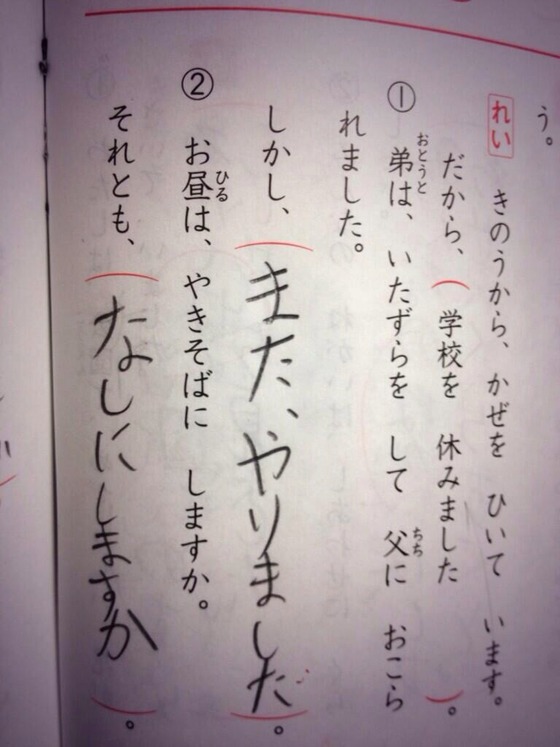 う。
れい　きのうから、かぜを　ひいて　います。
だから、（学校を　休みました　）。
①弟は、いたずらを　して　父に　おこら
れました。
しかし、（また、やりました）。
②お昼は、やきそばに　しますか。
それとも、（なしにしますか　）。